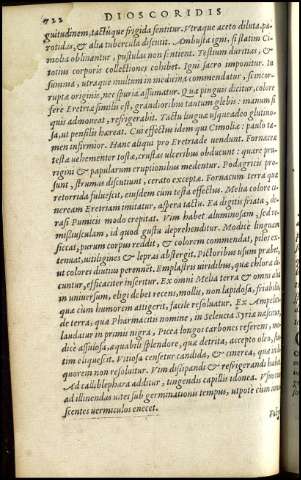 722 DIOSCORIDIS
guitudinem, tactúque frigida sentitur. Vtraque aceto diluta, pa-
rotidas, & alia tubercula discutit. Ambusta igni, si statim Ci-
molia oblinantur, pustulas non sentient. Testium duritias, &
totius corporis collectiones cohibet. Igni sacro imponitur. In
summa, utraque multùm in medicina commendatur, si incor-
rupta originis, nec spuria assumatur. Quæ pinguis dicitur, colore
fere Eretriæ similis est, grandioribus tantum glebis: manum si
quis admoueat, refrigerabit. Tactu linguæ usque adeò glutino-
sa, ut pensilis hæreat. Cui effectus idem qui Cimoliæ: paulo ta-
men infirmior. Hanc aliqui pro Eretriade uendunt. Fornacea
testa uehementer tostæ, crustas ulceribus obducunt: quare pru-
rigini & papularum eruptionibus medentur. Podagricis pro-
sunt, strumas discutiunt, cerato excepta. Fornacum terra quæ
retorrida fuluescit, eiusdem cum testa effectus. Melia colore ci-
neream Eretriam imitatur, aspera tactu. Ea digitis friata, de-
rasi Pumicis modo crepitat. Vim habet aluminosam, sed re-
missiusculam, id quod gustu deprehenditur. Modicè linguam
siccat, purum corpus reddit, & colorem commendat, pilos ex-
tenuat, uitiligines & lepras abstergit. Pictoribus usum præbet,
ut colores diutius perennet. Emplastris uiridibus, quæ chlora di-
cuntur, efficaciter inseritur. Ex omni Melia terra & omni alia
in uniuersum, eligi debet recens, mollis, non lapidosa, friabilis,
quæ cùm humorem attigerit, facile resoluatur. Ex Ampelite
de terra, quæ Pharmacitis nomine, in Selectia Syria nascitur,
laudatur in primis nigra, Piceæ longos carbones referens, mo-
dicè assulosa, æquabili splendore, quæ detrita, accepto oleo, sta-
tim eliquescit. Vitiosa censetur candida, & cinerea, quæ in li-
quorem non resoluitur. Vim dissipandi & refrigerandi habet.
Ad calliblephara additur, tingendis capillis idonea.
ad illinendas uites sub germinationis tempus, utpote cùm
scentes uermiculos enecet.